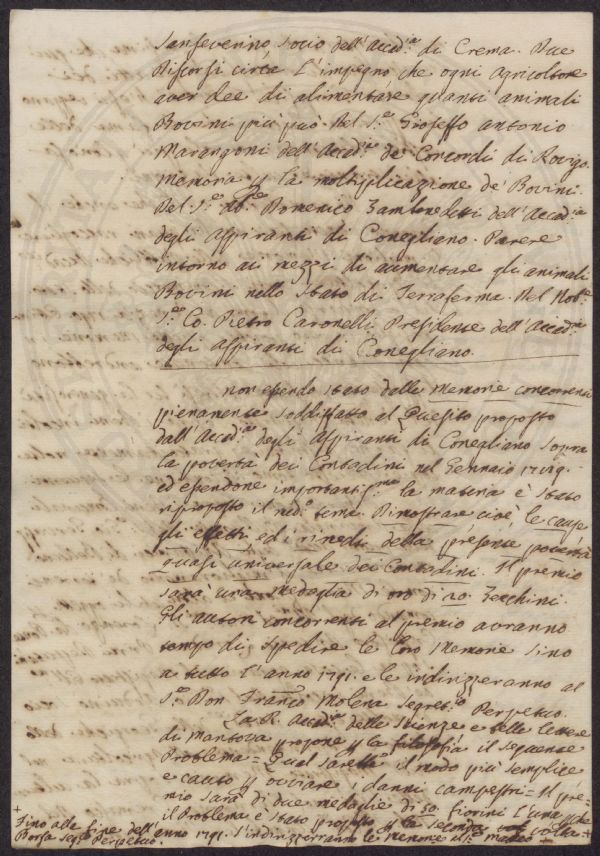 Sanseverino, socio dell'Accad.a di Crema. Due
Discorsi circa l'impegno che ogni agricoltore
aver dee di alimentare quanti animali
Bovini più può. Del S.r Gioseffo Antonio
Marangoni dell'Accad.a de' Concordi di Rovigo.
Memoria p la moltiplicazione de' Bovini.
Del S.r Ab.e Domenico Zambenedetti dell'Accad.a
degli Aspiranti di Conegliano. Parere
intorno ai mezzi di aumentare gli animali
Bovini nello Stato di Terraferma. Del Nob.e
S.r Co. Pietro Caronelli Presidente dell'Accad.a
degli Aspiranti di Conegliano.
Non essendo stato dalle Memorie concorrenti
pienamente soddisfatto al Quesito proposto
dall'Accad.a degli Aspiranti di Conegliano sopra
la povertà dei Contadini nel Gennaio 1789.
ed essendone importantiss.mo la materia è stato
riproposto il med.o tema. Dimostrare cioè, le cause
gli effetti, ed i rimedi della presente povertà
quasi universale dei Contadini. Il premio
sarà una Medaglia di oro di 20. Zecchini.
Gli autori concorrenti al premio avranno
tempo di spedire le loro Memorie sino
a tutto l'anno 1791. e le indirizzeranno al
S.r Don Franco Molena Segret.o Perpetuo.
La R. Accad.a delle Scienze e belle Lettere
di Mantova propone p la filosofia il seguente
Problema = Qual sarebbe il modo più semplice
e cauto p ovviare i danni campestri = Il pre-
mio sarà di due medaglie di 50 fiorini l'una, che
il Problema è stato proposto p la seconda volta +
+
Fino alla fine dell'anno 1791. s'indirizzeranno le Memorie al S.r Matteo
Borsa Seg.o Perpetuo.